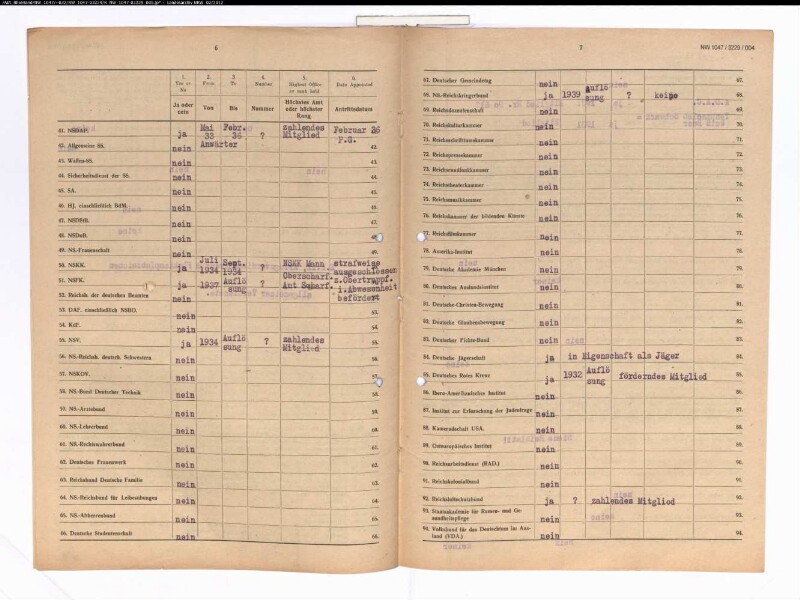 6
1. 2. 3. 4. 5. 6.
Yes or No From To Number Highest Office or rank held Date Appointed
Ja oder nein Von Bis Nummer Höchstes Amt oder höchster Rang Antrittsdatum
41. NSDAP. ja Mai 33 Febr. 36 ? zahlendes Mitglied Februar 36 P.G.
42. Allgemeine SS. nein Anwärter 42.
43. Waffen-SS. nein 43.
44. Sicherheitsdienst der SS. nein 44.
45. SA. nein 45.
46. HJ. einschließlich BdM. nein 46.
47. NSDStB. nein 47.
48. NSDoB. nein 48.
49. NS-Frauenschaft nein 49.
50. NSKK. ja Juli 1934 Sept. 1934 ? NSKK Mann strafweise ausgeschlossen
51. NSFK. ja 1937 Auflö sung ? Oberscharf. Amt Scharf. z.Obertruppf. i.Abwesenheit befördert
52. Reichsb. der deutschen Beamten nein
53. DAF. einschließlich NSBO. nein 53.
54. KdF. nein 54.
55. NSV. ja 1934 Auflö sung ? zahlendes Mitglied 55.
56. NS-Reichsb. deutsch. Schwestern nein 56.
57. NSKOV. nein 57.
58. NS-Bund Deutscher Technik nein 58.
59. NS-Ärztebund nein 59.
60. NS-Lehrerbund nein 60.
61. NS-Rechtswahrerbund nein 61.
62. Deutsches Frauenwerk nein 62.
63. Reichsbund Deutsche Familie nein 63.
64. NS-Reichsbund für Leibesübungen nein 64.
65. NS-Altherrenbund nein 65.
66. Deutsche Studentenschaft nein 66.
7
NW 1047 / 3229 / 004
67. Deutscher Gemeindetag nein 67.
68. NS-Reichskriegerbund ja 1939 Auflö sung ? keine 68.
69. Reichsdozentenschaft nein 69.
70. Reichskulturkammer nein 70.
71. Reichsschrifttumskammer nein 71.
72. Reichspressekammer nein 72.
73. Reichsrundfunkkammer nein 73.
74. Reichstheaterkammer nein 74.
75. Reichsmusikkammer nein 75.
76. Reichskammer der bildenden Künste nein 76.
77. Reichsfilmkammer nein 77.
78. Amerika-Institut nein 78.
79. Deutsche Akademie München nein 79.
80. Deutsches Auslandsinstitut nein 80.
81. Deutsche-Christen-Bewegung nein 81.
82. Deutsche Glaubensbewegung nein 82.
83. Deutscher Fichte-Bund nein 83.
84. Deutsche Jägerschaft ja in Eigenschaft als Jäger 84.
85. Deutsches Rotes Kreuz ja 1932 Auflö sung förderndes Mitglied 85.
86. Ibero-Amerikanisches Institut nein 86.
87. Institut zur Erforschung der Judenfrage nein 87.
88. Kameradschaft USA. nein 88.
89. Osteuropäisches Institut nein 89.
90. Reichsarbeitsdienst (RAD.) nein 90.
91. Reichskolonialbund nein 91.
92. Reichsluftschutzbund ja ? zahlendes Mitglied 92.
93. Staatsakademie für Rassen- und Gesundheitspflege nein 93.
94. Volksbund für das Deutschtum im Ausland (VDA.) nein 94.